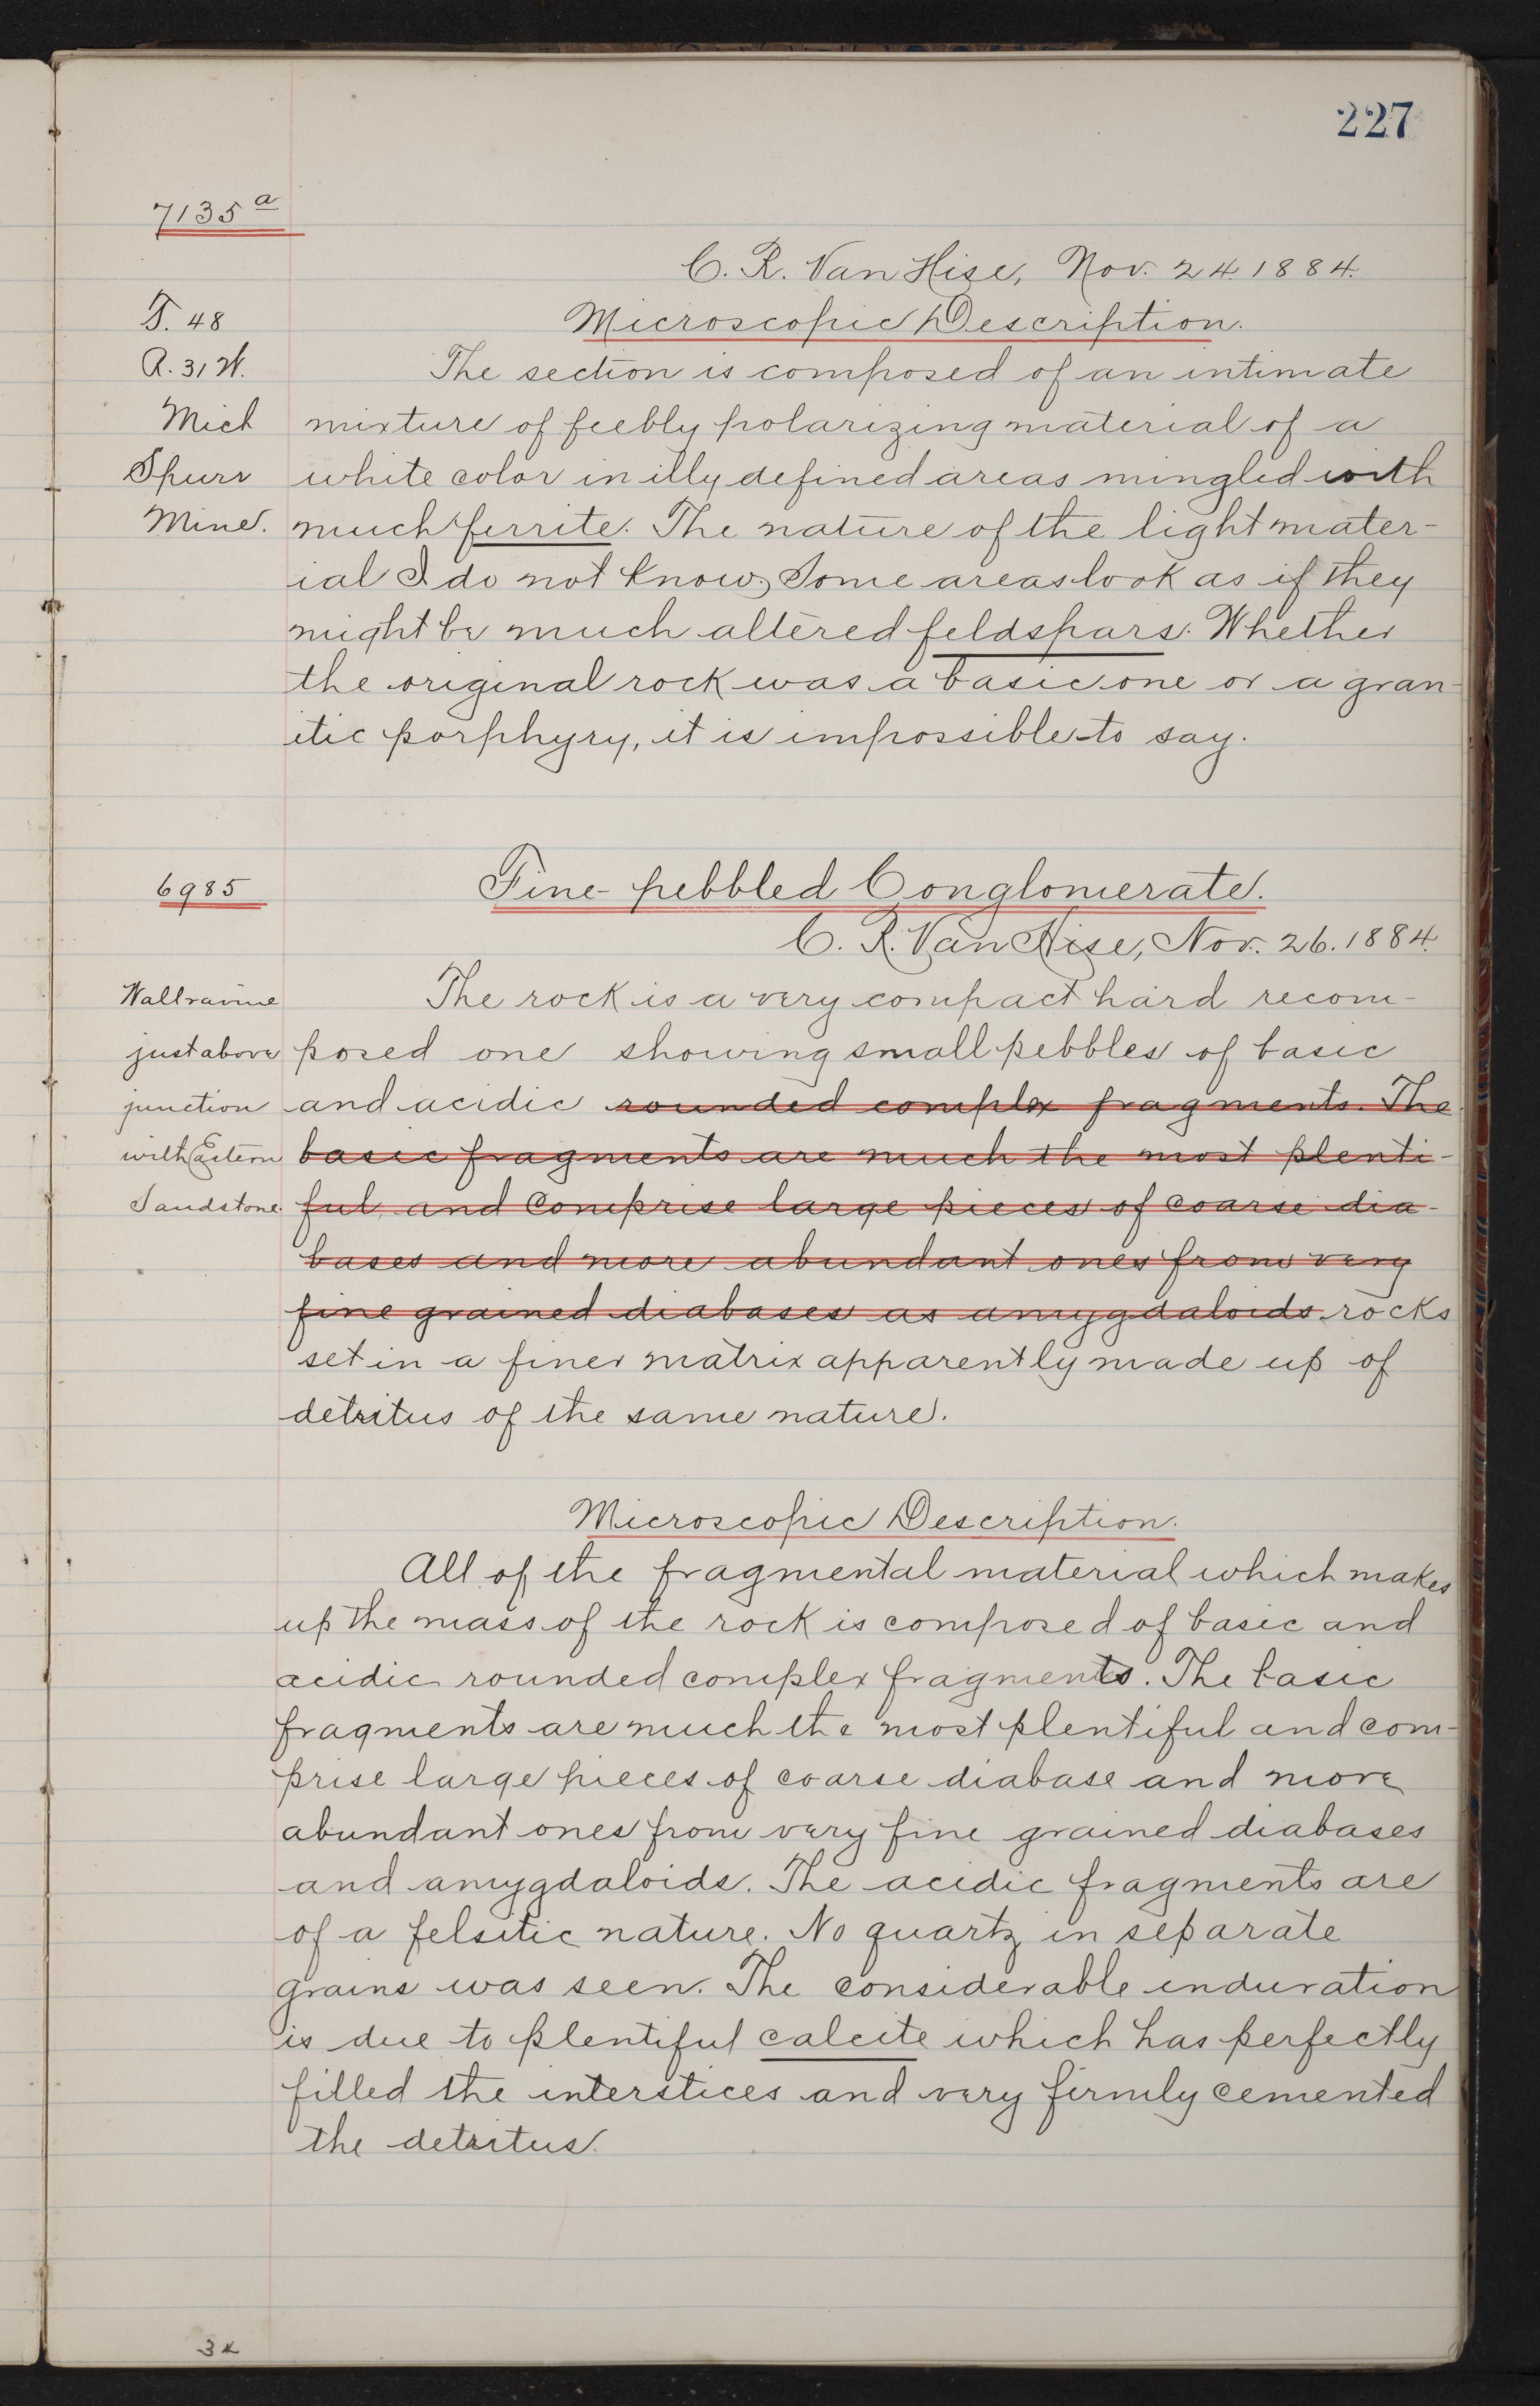 227
7135 a
C. R. Van Hise, Nov. 24. 1884.
T. 48
Microscopic Description.
R. 31 W.
The section is composed of an intimate
Mich
mixture of feebly polarizing material of a
Spurr
white color in illy defined areas mingled with
Mine.
much ferrite. The nature of the light mater-
ial I do not know; Some areas look as if they
might be much altered feldspars. Whether
the original rock was a basic one or a gran-
itic porphyry, it is impossible to say.
6985
Fine-pebbled Conglomerate.
C. R. Van Hise, Nov. 26. 1884.
Wall ravine
The rock is a very compact hard recom-
just above
posed one showing small pebbles of basic
junction
and acidic rounded complex fragments. The
with Eastern
basic fragments are much the most plenti-
Sandstone.
ful and comprise large pieces of coarse dia-
bases and more abundant ones from very
fine grained diabases as amygdaloids. rocks
set in a finer matrix apparently made up of
detritus of the same nature.
Microscopic Description.
All of the fragmental material which makes
up the mass of the rock is composed of basic and
acidic rounded complex fragments. The basic
fragments are much the most plentiful and com-
prise large pieces of coarse diabase and more
abundant ones from very fine grained diabases
and amygdaloids. The acidic fragments are
of a felsitic nature. No quartz in separate
grains was seen. The considerable induration
is due to plentiful calcite which has perfectly
filled the interstices and very firmly cemented
the detritus.